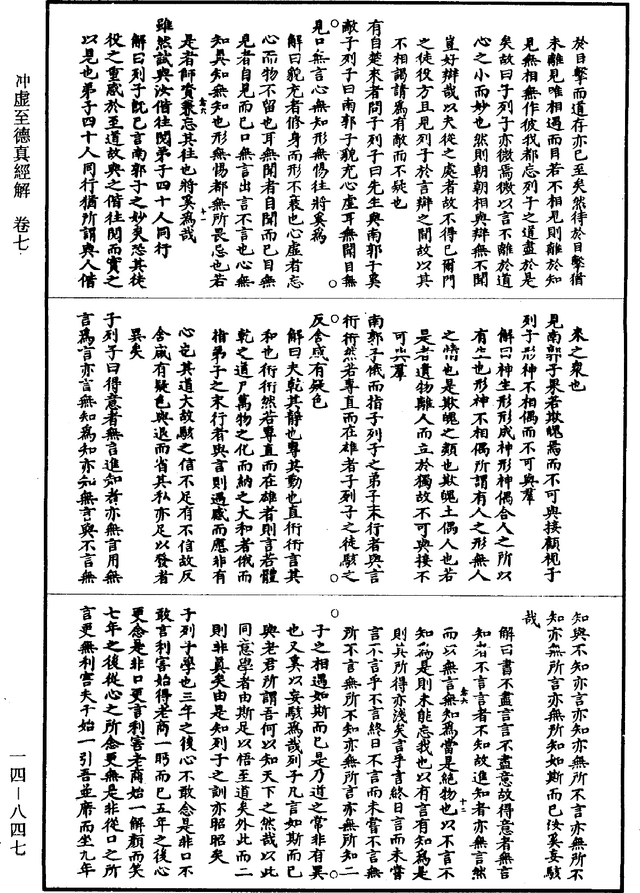 冲虛至德真經解　卷七
一四－八四七
於目擊而道存亦已至矣然待於目擊猶
未離見唯相遇而目若不相見則離於知
見無相無作彼我都忘列子之道盡於是
矣故曰子列子亦微焉微以言不離於道
心之小而妙也然則朝朝相與辯無不聞
豈好辯哉以夫從之處者故不得已爾門
之徒役方且見列子於言辯之間故以其
不相謁請為有敵而不疑也
有自楚來者問子列子曰先生與南郭子奚
敵子列子曰南郭子貌充心虛耳無聞目無
見口無言心無知形無惕往將奚為
解曰貌充者修身而形不衰也心虛者忘
心而物不留也耳無聞者自聞而已目無
見者自見而已口無言出言不言也心無
知真知無知也形無惕都無所畏忌也若
是者師資兼忘其往也將奚為哉
雖然試與汝偕往閱弟子四十人同行
解曰列子既已言南郭子之妙矣恐其徒
役之重惑於至道故與之偕往閱而實之
以見也弟子四十人同行猶所謂與人偕
來之衆也
見南郭子果若欺魄焉而不可與接顧視子
列子形神不相偶而不可與羣
解曰神生形形成神形神偶合人之所以
有生也形神不相偶所謂有人之形無人
之情也是欺魄之類也欺魄土偶人也若
是者遺物離人而立於獨故不可與接不
可與羣
南郭子俄而指子列子之弟子末行者與言
衎衎然若專直而在雄者子列子之徒駭之
反舍咸有疑色
解曰夫乾其靜也專其動也直衎衎言其
和也衎衎然若專直而在雄者則言若體
乾之道尸萬物之化而納之大和者俄而
指弟子之末行者與言則遇感而應非有
心宅其道大故駭之信不足有不信故反
舍咸有疑色與退而省其私亦足以發者
異矣
子列子曰得意者無言進知者亦無言用無
言為言亦言無知為知亦知無言與不言無
知與不知亦言亦知亦無所不言亦無所不
知亦無所言亦無所知如斯而已汝奚妄駭
哉
解曰書不盡言言不盡意故得意者無言
知者不言言者不知故進知者亦無言然
而以無言無知為當是絕物也以不言不
知為是則未能忘我也以有言有知為是
則其所得亦淺矣言乎言終日言而未嘗
言不言乎不言終日不言而未嘗不言無
所不言無所不知亦無所言亦無所知二
子之相遇如斯而已是乃道之常非有異
也又奚以妄駭為哉列子凡言如斯而已
與老君所謂吾何以知天下之然哉以此
同意學者由斯足以悟至道矣外此而二
則非真矣由是知列子之訓亦昭昭矣
子列子學也三年之後心不敢念是非口不
敢言利害始得老商一眄而已五年之後心
更念是非口更言利害老商始一解顏而笑
七年之後從心之所念更無是非從口之所
言更無利害夫子始一引吾並席而坐九年